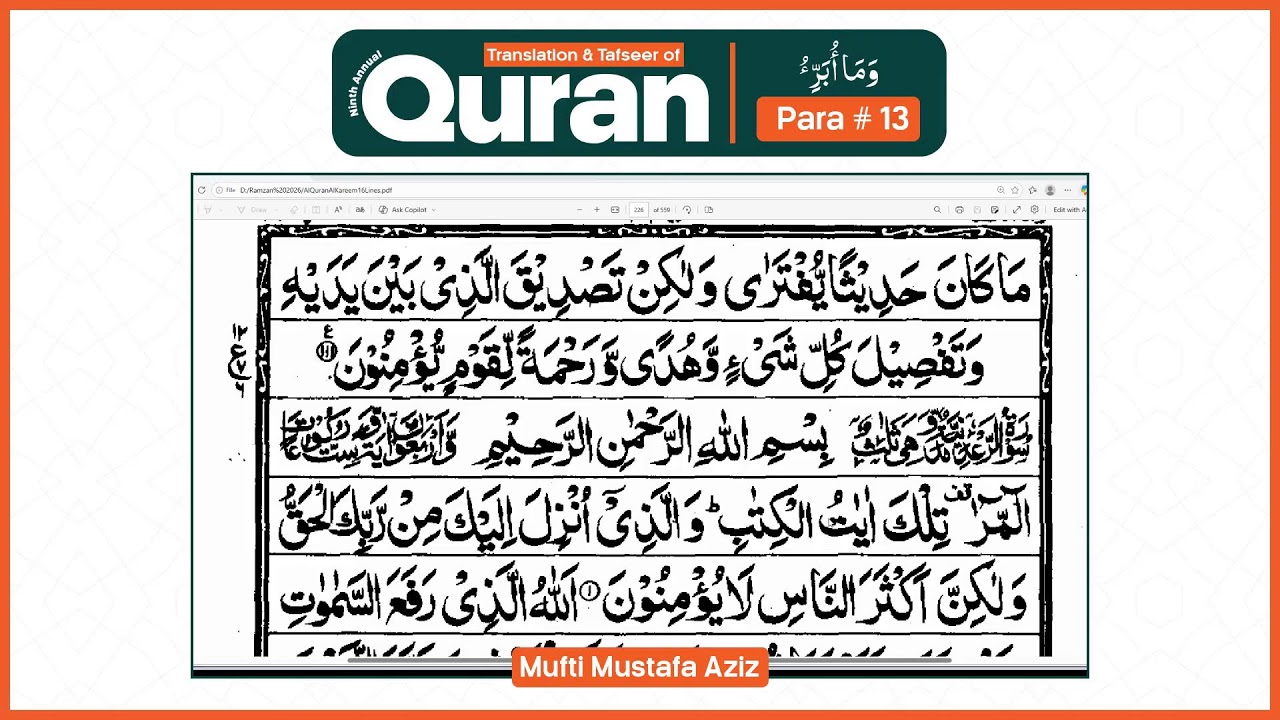 Ninth Annual
Translation & Tafseer of
Quran
وَمَا أُبَرِّئُ
Para # 13
File D:/Ramzan%202026/AlQuranAlKareem16Lines.pdf
Draw Ask Copilot 226 of 559 Edit with A
مَا كَانَ حَدِيْثًا يُّفْتَرٰى وَلٰكِنْ تَصْدِيْقَ الَّذِىْ بَيْنَ يَدَيْهِ
وَتَفْصِيْلَ كُلِّ شَىْءٍ وَّهُدًى وَّرَحْمَةً لِّقَوْمٍ يُّؤْمِنُوْنَ ۝۱۱۱
بِسْمِ اللهِ الرَّحْمٰنِ الرَّحِيْمِ
الٓمّٓرٰ تِلْكَ اٰيٰتُ الْكِتٰبِ ؕ وَالَّذِىْٓ اُنْزِلَ اِلَيْكَ مِنْ رَّبِّكَ الْحَقُّ
وَلٰكِنَّ اَكْثَرَ النَّاسِ لَا يُؤْمِنُوْنَ ۝۱ اَللهُ الَّذِىْ رَفَعَ السَّمٰوٰتِ
Mufti Mustafa Aziz